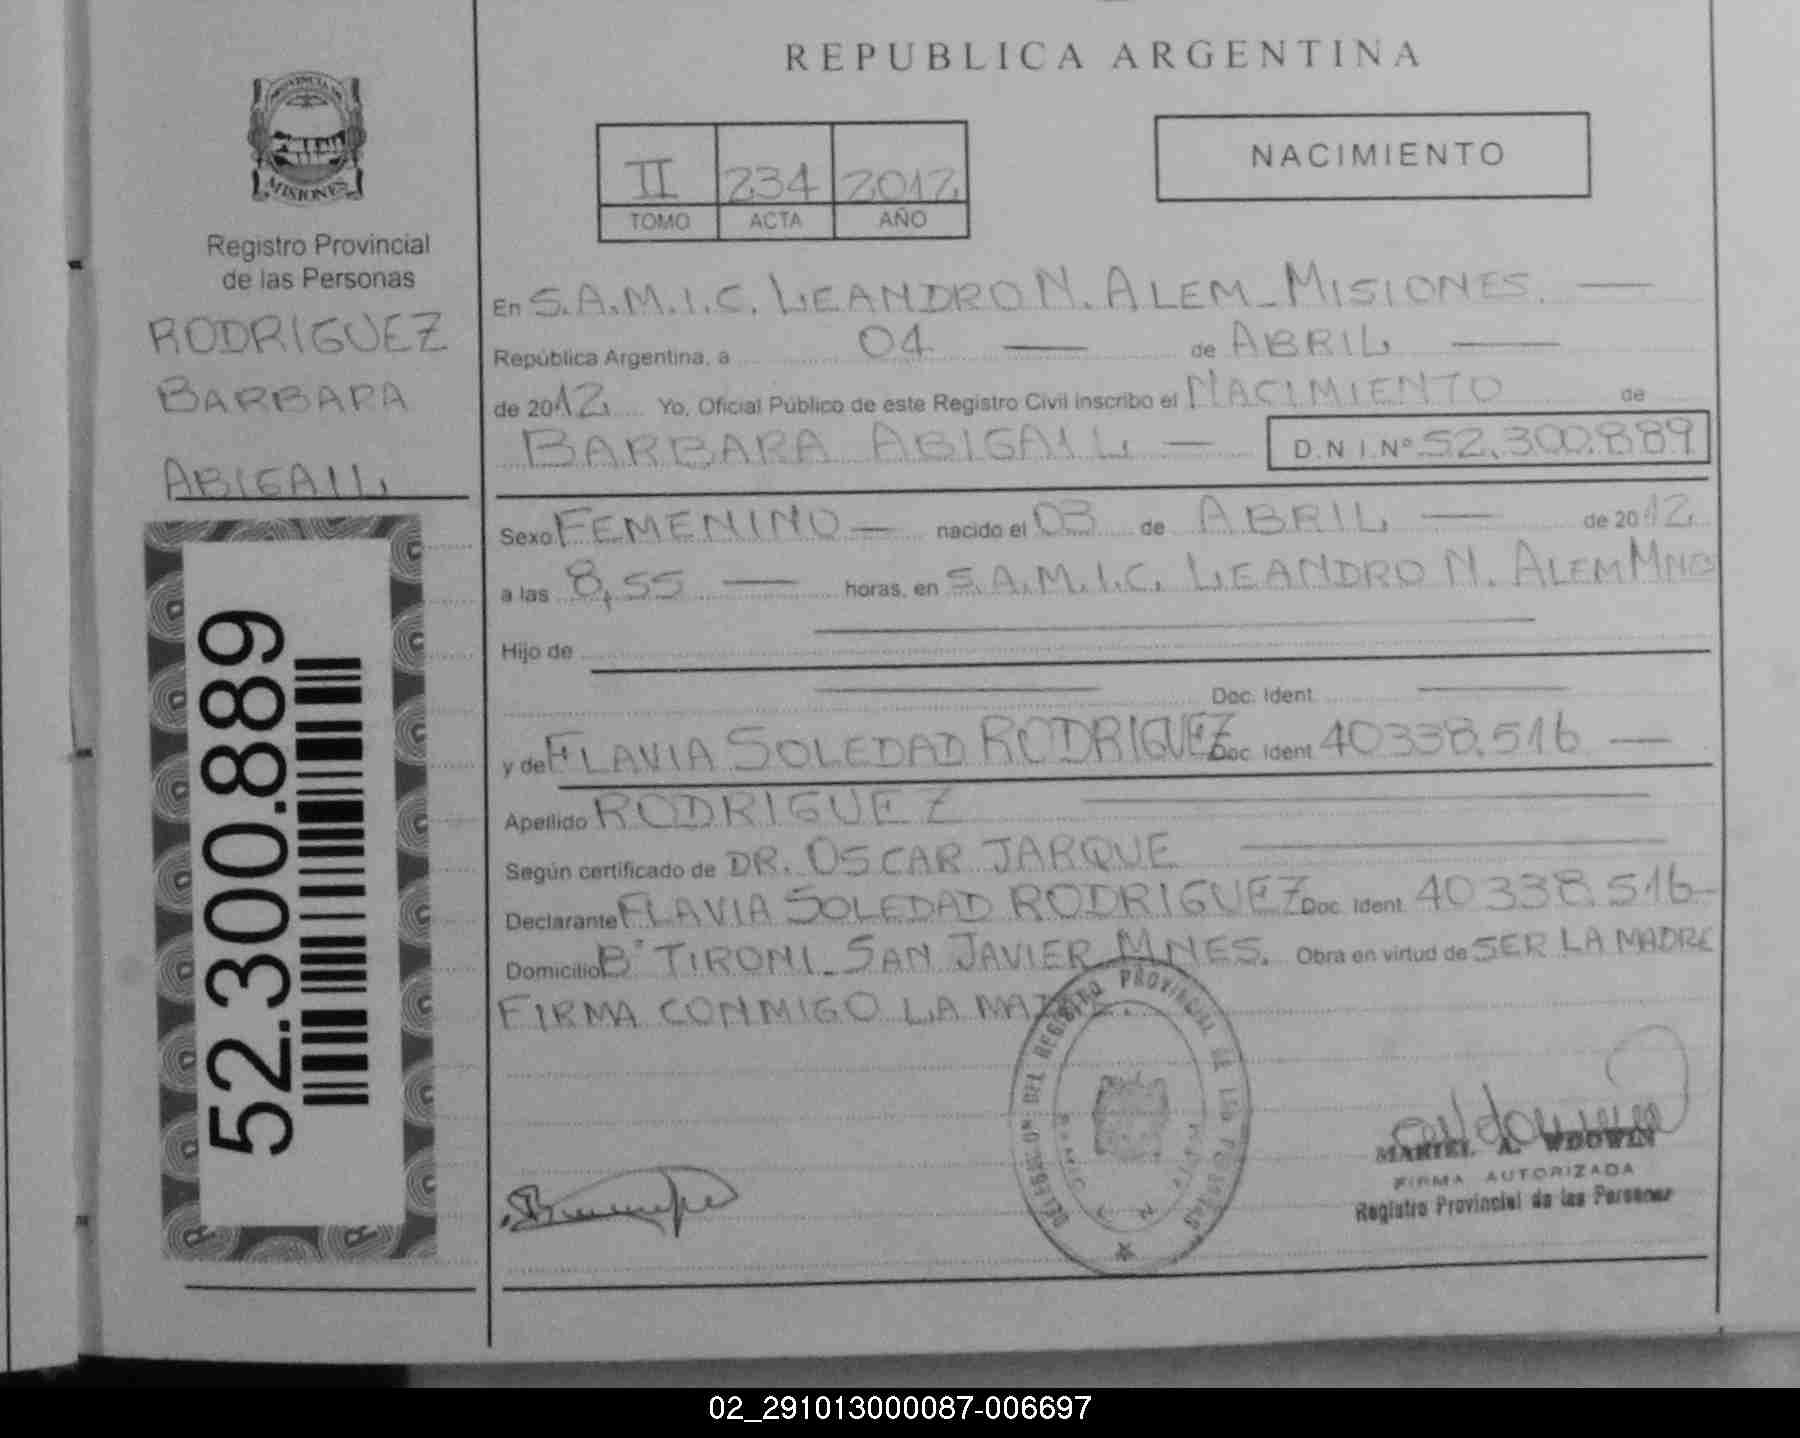 REPUBLICA ARGENTINA
PROVINCIA DE
MISIONES
Registro Provincial
de las Personas
RODRIGUEZ
BARBARA
ABIGAIL
52.300.889
II 234 2012
TOMO ACTA AÑO
NACIMIENTO
En S.A.M.I.C. LEANDRO N. ALEM - MISIONES. —
República Argentina, a 04 — de ABRIL —
de 2012 Yo, Oficial Público de este Registro Civil inscribo el NACIMIENTO de
BARBARA ABIGAIL — D.N.I.Nº 52.300.889
Sexo FEMENINO — nacido el 03 de ABRIL — de 2012
a las 8,55 — horas, en S.A.M.I.C. LEANDRO N. ALEM MNES
Hijo de —
— Doc. Ident. —
y de FLAVIA SOLEDAD RODRIGUEZ Doc. Ident. 40338.516 —
Apellido RODRIGUEZ —
Según certificado de DR. OSCAR JARQUE —
Declarante FLAVIA SOLEDAD RODRIGUEZ Doc. Ident. 40338.516 -
Domicilio Bº TIRONI - SAN JAVIER MNES. Obra en virtud de SER LA MADRE
FIRMA CONMIGO LA MADRE.
DELEGACION DEL REGISTRO PROVINCIAL DE LAS PERSONAS
MARIEL A. WDOWIN
FIRMA AUTORIZADA
Registro Provincial de las Personas
02_291013000087-006697